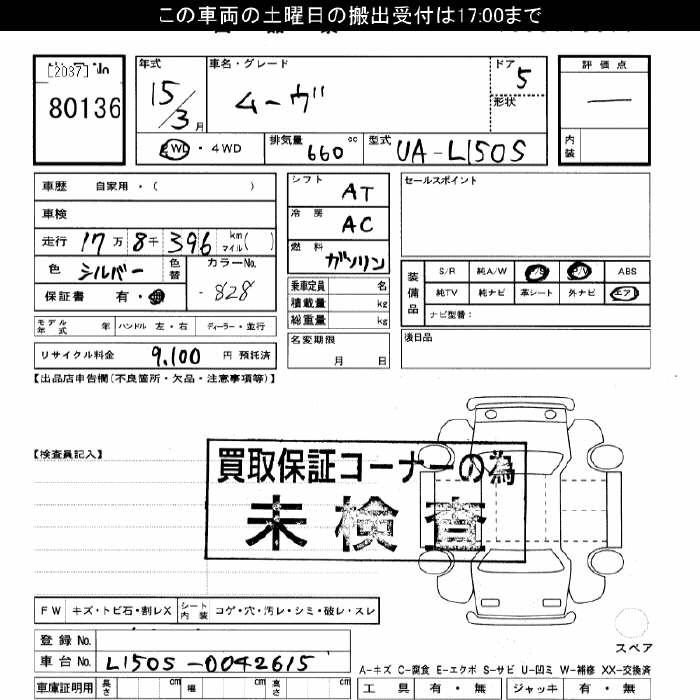 この車両の土曜日の搬出受付は17:00まで
[2037]
80136
年式 15/3月
車名・グレード ムーヴ
ドア 5
形状
2WD・4WD
排気量 660 cc
型式 UA-L150S
評価点 —
内装
車歴 自家用・( )
車検
走行 17万8千396 km マイル( )
色 シルバー
色替
カラーNo. -828
保証書 有・無
モデル年式 年 ハンドル 左・右 ディーラー・並行
リサイクル料金 9,100 円 預託済
シフト AT
冷房 AC
燃料 ガソリン
乗車定員 名
積載量 kg
総重量 kg
名変期限 月 日
セールスポイント
装備品
S/R 純A/W P/S P/W ABS
純TV 純ナビ 革シート 外ナビ エアB
ナビ型番:
後日品
【出品店申告欄(不良箇所・欠品・注意事項等)】
【検査員記入】
買取保証コーナーの為
未検査
FW キズ・トビ石・割レX
シート内装 コゲ・穴・汚レ・シミ・破レ・スレ
登録No.
車台No. L150S-0042615
車庫証明用 長さ cm 幅 cm 高さ cm
スペア
A-キズ C-腐食 E-エクボ S-サビ U-凹ミ W-補修 XX-交換済
工具 有・無 ジャッキ 有・無